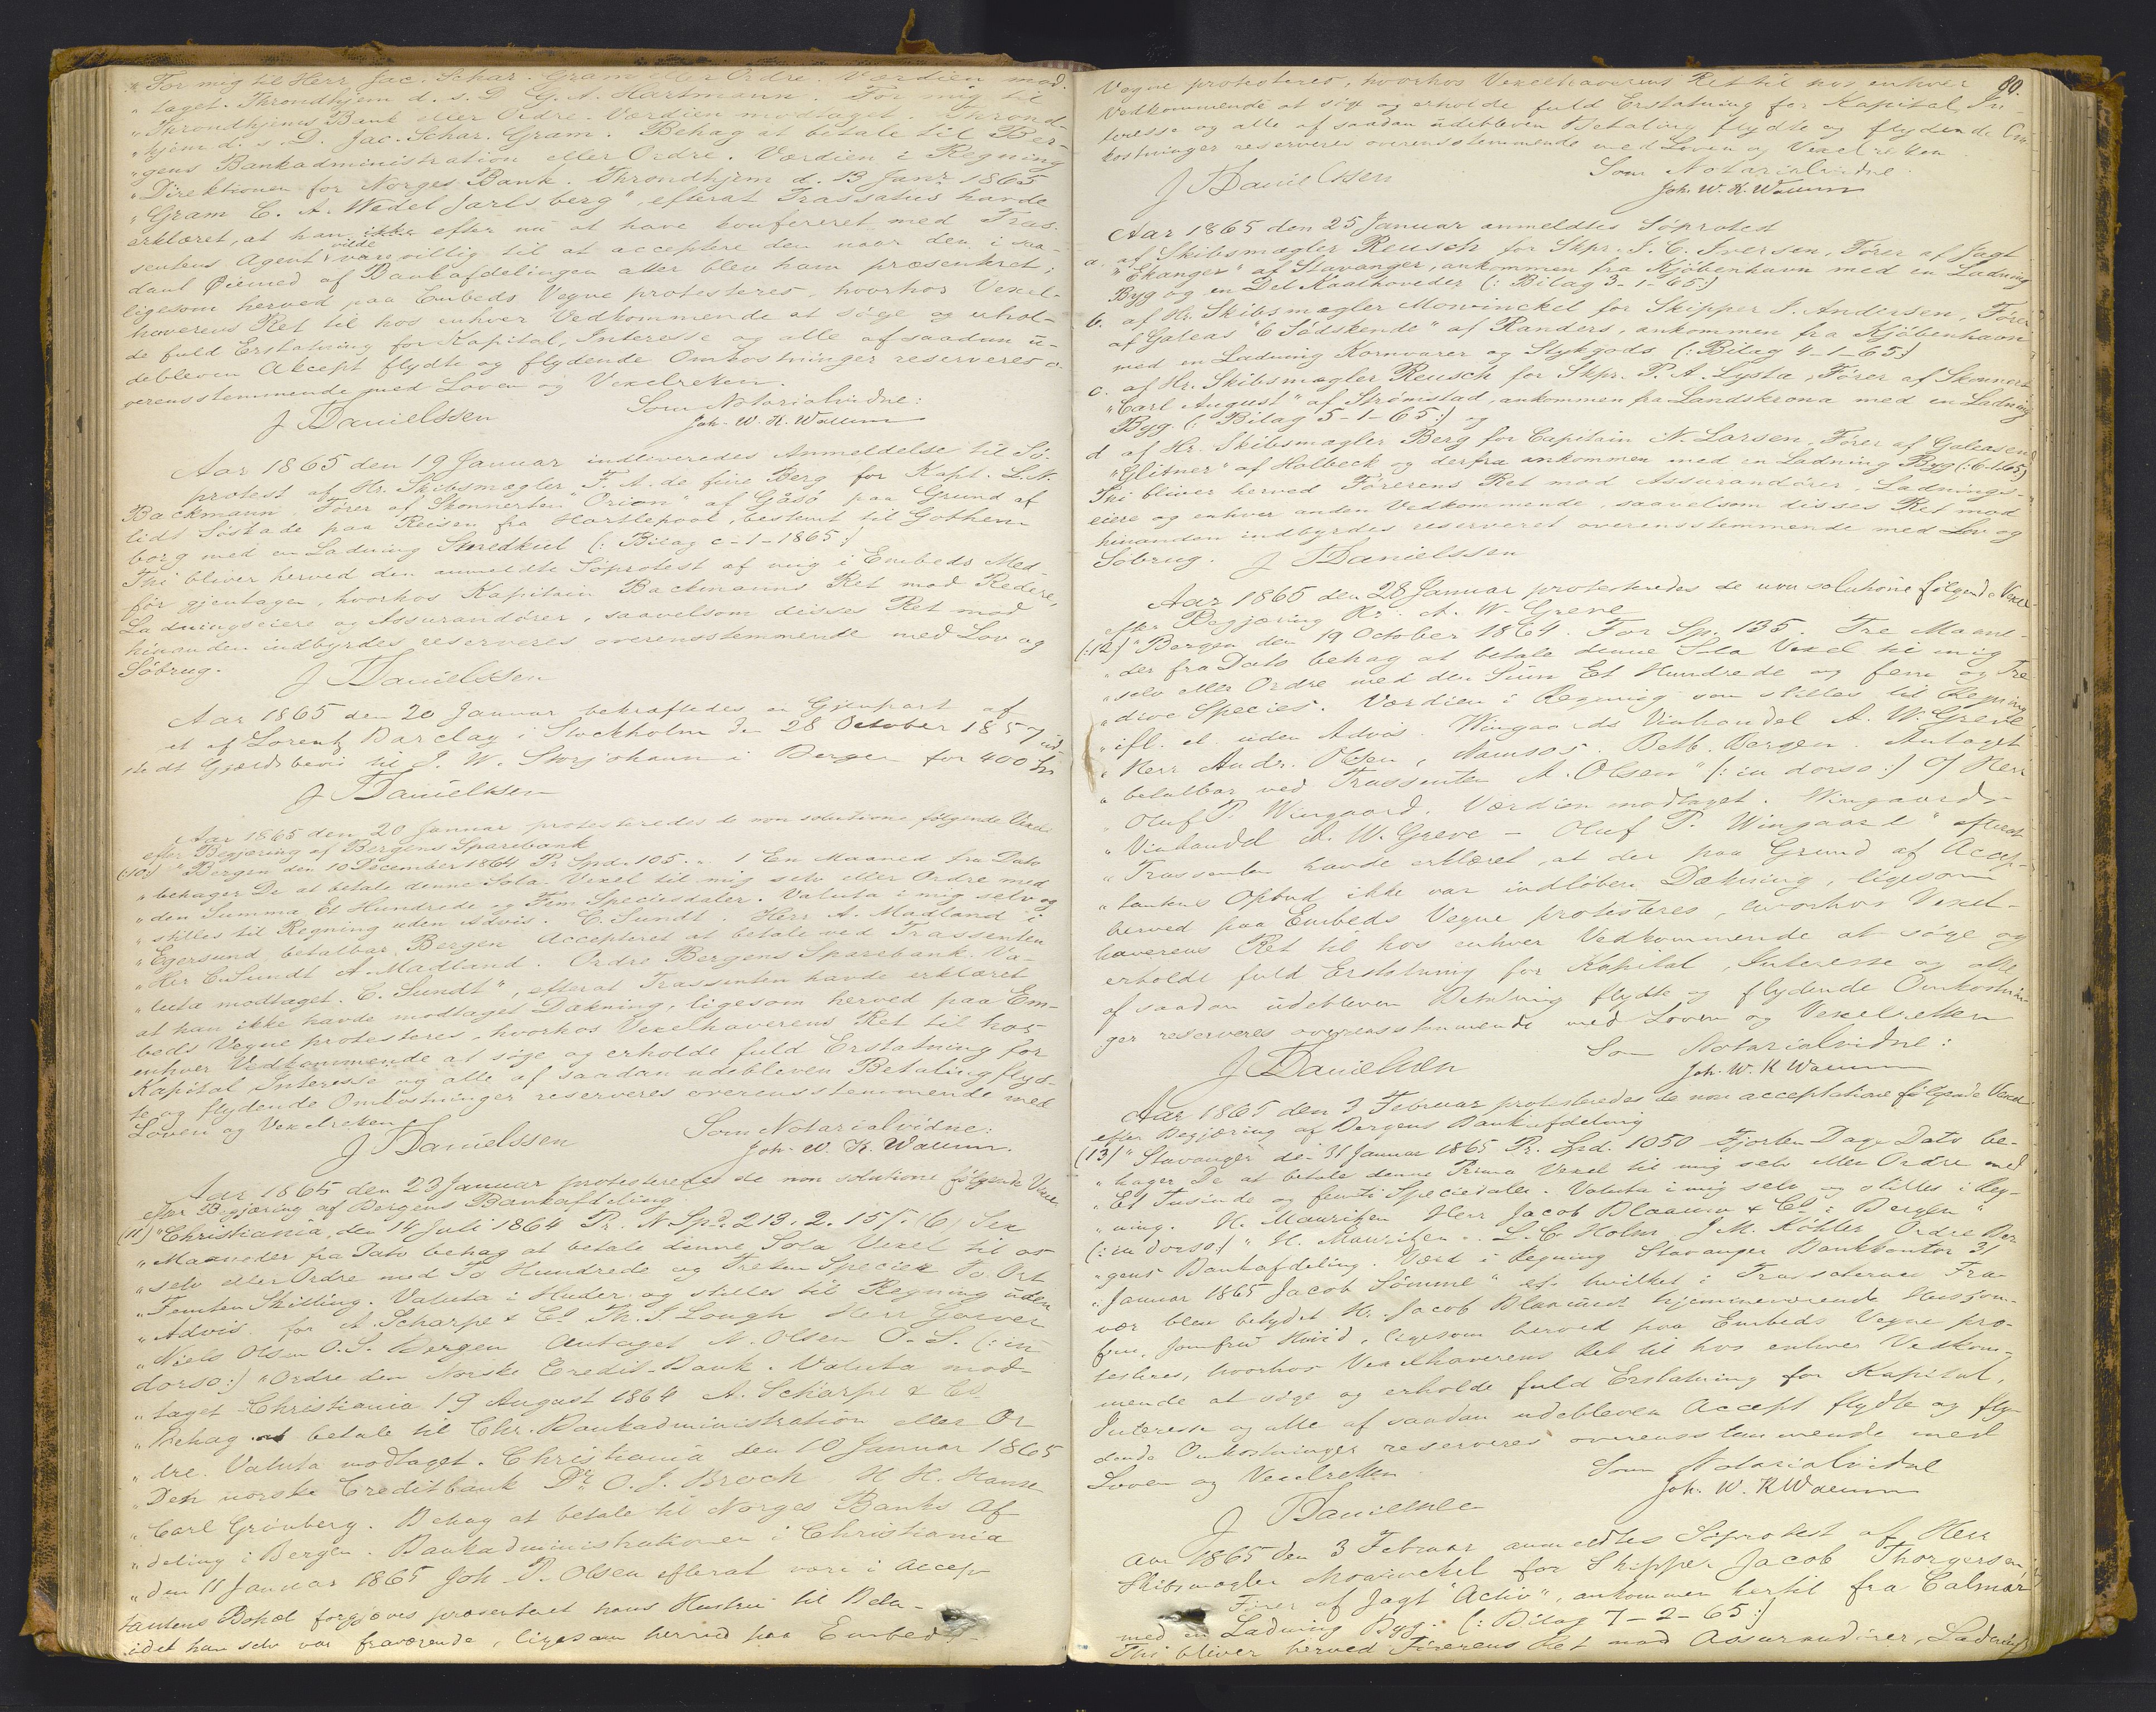 "For mig til Herr Jac. Schar. Gram eller Ordre. Værdien mod.
"taget. Throndhjem d. s. D. G. A. Hartmann. For mig til
"Throndhjems Bank eller Ordre. Værdien modtaget. Thrond-
"hjem d. s. D. Jac. Schar. Gram. Behag at betale til Ber-
"gens Bankadministration eller Ordre. Værdien i Regning
"Direktionen for Norges Bank. Throndhjem d. 13 Janr. 1865
"Gram C. A. Wedel Jarlsberg", efterat Trassatus havde
erklæret, at han ikke efter nu at have konfereret med Tras-
sentens Agent vilde villig til at acceptere den naar den i saa-
dant Øiemed af Bankafdelingen atter blev ham præsenteret;
ligesom herved paa Embeds Vegne protesteres, hvorhos Vexel-
haverens Ret til hos enhver Vedkommende at søge og erhol-
de fuld Erstatning for Kapital, Interesse og alle af saadan u-
debleven Akcept flydte og flydende Omkostninger reserveres o-
verensstemmende med Loven og Vexelretten.
J Danielssen
Som Notarialvidne:
Joh. W. K. Wallem
Aar 1865 den 19 Januar indleveredes Anmeldelse til Sø-
protest af Hr. Skibsmægler F. A. de fine Berg for Kapt. L. N.
Backmann Fører af Skonnerten "Orion" af Gåsö paa Grund af
lidt Søskade paa Reisen fra Hartlepool, bestemt til Gothen-
borg med en Ladning Smedkul (: Bilag c-1-1865:)
Thi bliver herved den anmeldte Søprotest af mig i Embeds Med-
før gjentagen, hvorhos Kapitain Backmanns Ret mod Redere,
Ladningseiere og Assurandører, saavelsom disses Ret mod
hinanden indbyrdes reserveres overensstemmende med Lov og
Søbrug.
J Danielssen
Aar 1865 den 20 Januar bekræftedes en Gjenpart af
et af Lorentz Barclay i Stockholm den 28 October 1857 ud-
stedt Gjældsbevis til J. W. Storjohann i Bergen for 400
J Danielssen
Aar 1865 den 20 Januar protesteredes de non solutione følgende Vexel
efter Begjæring af Bergens Sparebank
(10) "Bergen den 10 December 1864 Pr Spd. 105. " 1 En Maaned fra Dato
"behager De at betale denne Sola Vexel til mig selv eller Ordre med
"den Summa Et Hundrede og Fem Speciesdaler. Valuta i mig selv og
"stilles til Regning uden Advis. C. Sundt. Herr A. Madland i
"Egersund, betalbar Bergen. Accepteret at betale ved Trassenten
"Her C. Sundt A. Madland. Ordre Bergens Sparebank. Va-
"luta modtaget. C. Sundt", efterat Trassenten havde erklæret
at han ikke havde modtaget Dækning, ligesom herved paa Em-
beds Vegne protesteres, hvorhos Vexelhaverens Ret til hos
enhver Vedkommende at søge og erholde fuld Erstatning for
Kapital Interesse og alle af saadan udebleven Betaling flyd-
te og flydende Omkostninger reserveres overensstemmende med
Loven og Vexelretten
J Danielssen
Som Notarialvidne:
Joh. W. K. Wallem.
Aar 1865 den 23 Januar protesteredes de non solutione følgende Vexel
efter Begjæring af Bergens Bankafdeling
(11) "Christiania, den 14 Juli 1864 Pr. N. Spd. 213. 2. 15/. (6) Sex
"Maaneder fra Dato behag at betale denne Sola Vexel til os
"selv eller Ordre med To Hundrede og Tretten Species To Ort
"Femten Skilling. Valuta i Huder og stilles til Regning uden
"Advis for A. Scharpe & Co. Th. J. Lough Herr Garver
"Niels Olsen O.S. Bergen Antaget N. Olsen O. S. (: in
dorso:) "Ordre den Norske Credit-Bank. Valuta mod-
"taget Christiania 19 August 1864 A. Scharpe & Co.
"Behag at betale til Chr. Bankadministration eller Or-
"dre. Valuta modtaget. Christiania den 10 Januar 1865
"Den norske Creditbank Dr. O. J. Broch H. H. Hansen
"Carl Grönberg. Behag at betale til Norges Banks Af
"deling i Bergen. Bankadministrationen i Christiania
"den 11 Januar 1865 Joh. P. Olsen efterat være i Accep-
tantens Bopæl forgjæves præsenteret hans Hustru til Beta-
idet han selv var fraværende, ligesom herved paa Embeds-
80.
Vegne protesteres, hvorhos Vexelhaverens Ret til hos enhver
Vedkommende at søge og erholde fuld Erstatning for Kapital, In-
teresse og alle af saadan udebleven Betaling flydte og flydende Om-
kostninger reserveres overensstemmende med Loven og Vexelretten.
J Danielssen
Som Notarialvidne.
Joh. W. K. Wallem
Aar 1865 den 25 Januar anmeldtes Søprotest
a. af Skibsmægler Reusch for Skpr. J. C. Iversen, Fører af Jagt
"Ekanger" af Stavanger, ankommen fra Kjøbenhavn med en Ladning
Byg og en Del Kaalhoveder (: Bilag 3-1-65:)
b. af Hr. Skibsmægler Mowinckel for Skipper S. Andersen, Fører
af Galeas "6 Sødskende" af Randers, ankommen fra Kjøbenhavn
med en Ladning Kornvarer og Stykgods (: Bilag 4-1-65:)
c. af Hr. Skibsmægler Reusch for Skpr. P. A. Lysta, Fører af Skonnert
"Carl August" af Strømstad, ankommen fra Landskrona med en Ladning
Byg. (: Bilag 5-1-65:) og
d af Hr. Skibsmægler Berg for Capitain N. Larsen, Fører af Galeasen
"Glitner" af Holbeck og derfra ankommen med en Ladning Byg (: 6-1-65:)
Thi bliver herved Førerens Ret mod Assurandører, Ladnings-
eiere og enhver anden Vedkommende, saavelsom disses Ret mod
hinanden indbyrdes reserveret overensstemmende med Lov og
Søbrug.
J Danielssen
Aar 1865 den 28 Januar protesteredes de non solutione følgende Vexel
efter Begjæring Hr. A. W. Greve
(:12) "Bergen den 19 October 1864. For Sp. 135. Tre Maane-
"der fra Dato behag at betale denne Sola Vexel til mig
"selv eller Ordre med den Sum Et Hundrede og fem og Tre
"dive Species. Værdien i Regning som stilles til Regning
"ifl. el. uden Advis. Wingaards Vinhandel A. W. Greve
"Herr Andr. Olsen, Namsos. Betb. Bergen. Antaget
"betalbar ved Trassenten A. Olsen" (: in dorso:) O/ Herr
"Oluf P. Wingaard. Værdien modtaget. Wingaards
"Vinhandel A. W. Greve - Oluf P. Wingaard" efterat
"Trassenten havde erklæret, at der paa Grund af Accep-
"tantens Opbud ikke var indløben Dækning, ligesom
herved paa Embeds Vegne protesteres, hvorhos Vexel-
haverens Ret til hos enhver Vedkommende at søge og
erholde fuld Erstatning for Kapital, Interesse og alle
af saadan udebleven Betaling flydte og flydende Omkostnin-
ger reserveres overensstemmende med Loven og Vexelretten
J Danielssen
Som Notarialvidne:
Joh. W. K Wallem
Aar 1865 den 3 Februar protesteredes de non acceptatione følgende Vexel
efter Begjæring af Bergens Bankafdeling
(13) "Stavanger de 31 Januar 1865 Pr. Spd. 1050 Fjorten Dage Dato be-
"hager De at betale denne Prima Vexel til mig selv eller Ordre med
"Et Tusinde og femti Speciedaler. Valuta i mig selv og stilles i Reg-
"ning. H. Mauritzen Herr Jacob Blaauw & Co. i Bergen"
(: in dorso:) "H. Mauritzen. L. C. Holm J. M. Köhler Ordre Ber-
"gens Bankafdeling. Værd i Regning Stavanger Bankkontor 31
"Januar 1865 Jacob Sömme" eft. hvilket i Trassaternes Fra-
vær blev betydet Hr. Jacob Blaauws hjemmeværende Husjom-
fru, Jomfru Kivid, ligesom herved paa Embeds Vegne pro-
testeres, hvorhos Vexelhaverens Ret til hos enhver Vedkom-
mende at søge og erholde fuld Erstatning for Kapital,
Interesse og alle af saadan udebleven Accept flydte og fly-
dende Omkostninger reserveres overensstemmende med
Loven og Vexelretten
J Danielssen
Som Notarialvidne
Joh. W. K Wallem
Aar 1865 den 3 Februar anmeldtes Søprotest af Herr
Skibsmægler Mowinckel for Skipper Jacob Thorgersen
Fører af Jagt "Activ", ankommen hertil fra Calmar
med en Ladning Byg. (: Bilag 7-2-65:)
Thi bliver herved Førerens Ret mod Assurandører, Ladnings